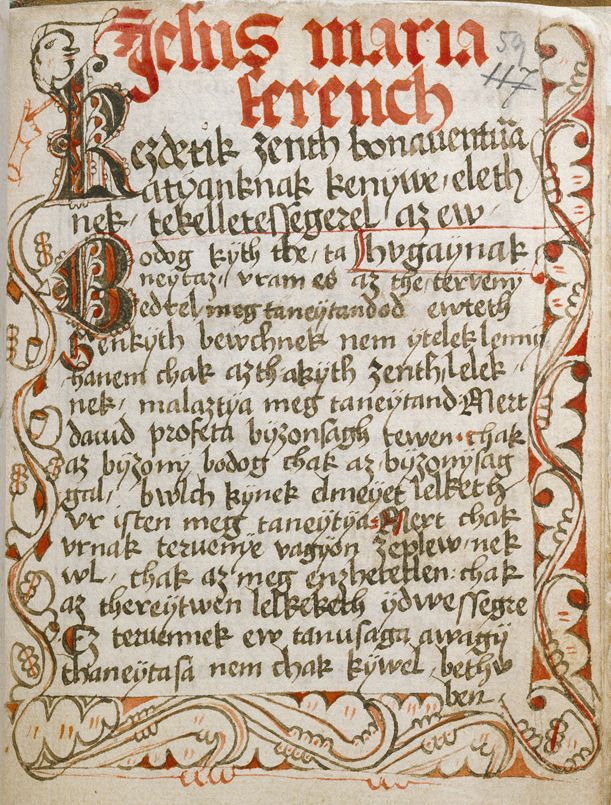 Jesus maria
kerench
59
117
Kezdetik zenth bonauentura
atyanknak kenywe, eleth
nek, tekelletessegerel, az ew
hvgaynak
Bodog kyth the, ta
neytaz, vram es az the terveny
edrel meg taneytandod ewteth
Senkyth bewchnek nem ytelek lenny
hanem chak azth akyth zenth lelek
nek, malaztya meg taneytand Mert
dauid profeta byzonsagh tewen chak
az byzony bodog chak az byzonysag
gal, bwlch kynek elmeyet lelketh
vr isten meg taneytya Mert chak
vrnak teruenye vagyon zeplew nek
wl, chak az meg enzhetetlen chak
az thereytwen lelkeketh ydwessegre
Ez teruennek ew tanusaga awagy
thaneytasa nem chak kywel, bethw
ben